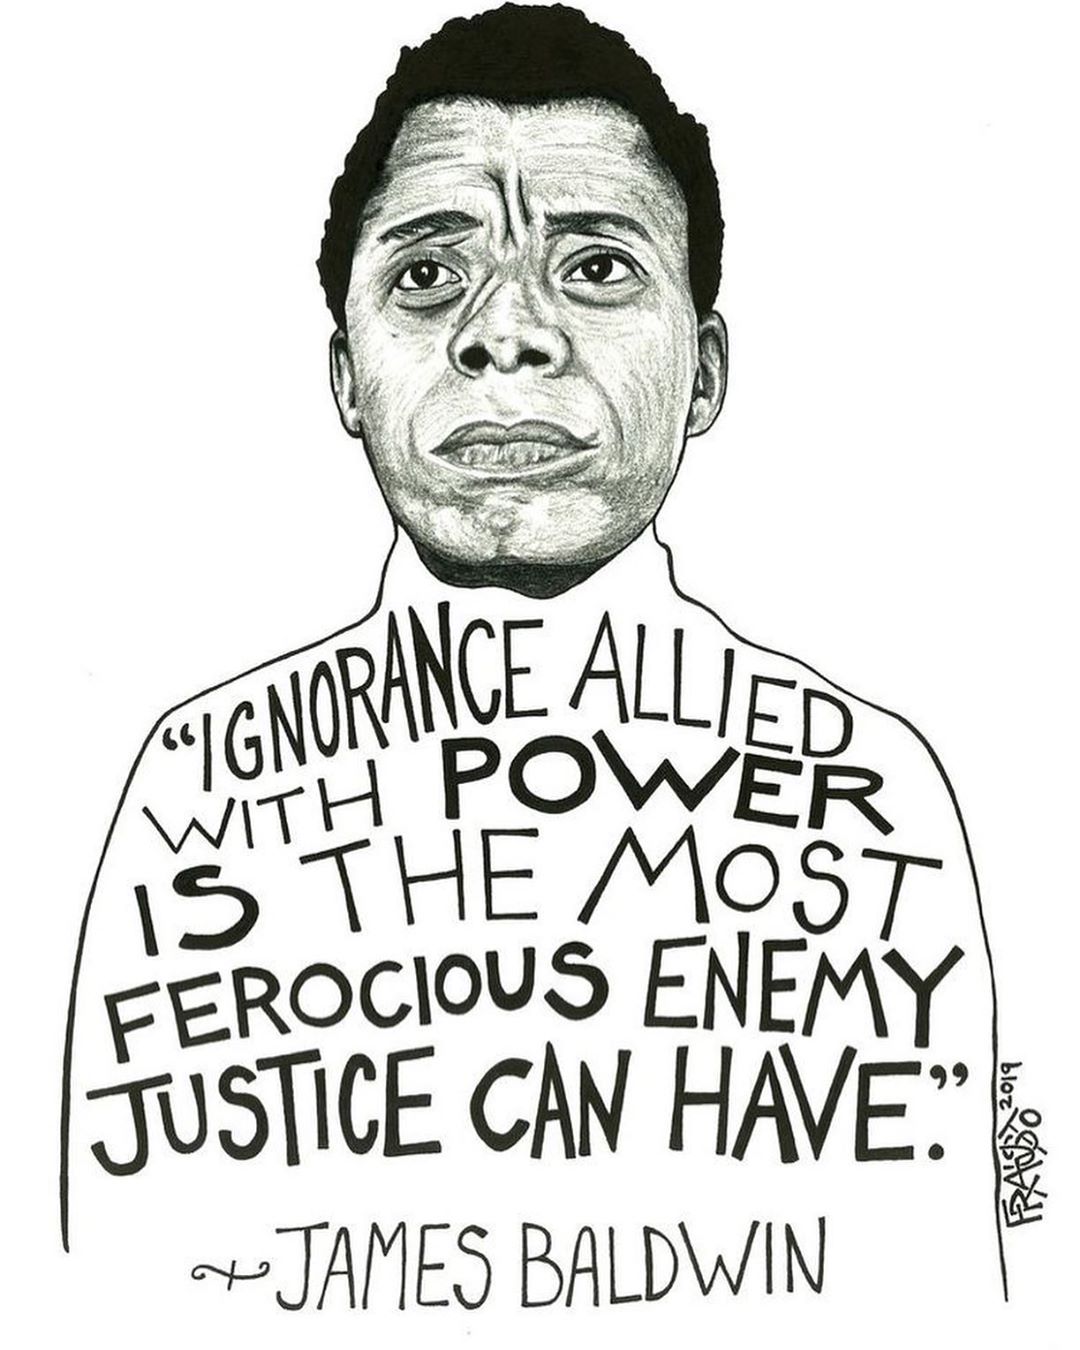 “IGNORANCE ALLIED
WITH POWER
IS THE MOST
FEROCIOUS ENEMY
JUSTICE CAN HAVE.”
~JAMES BALDWIN
FRAUSTO
2019